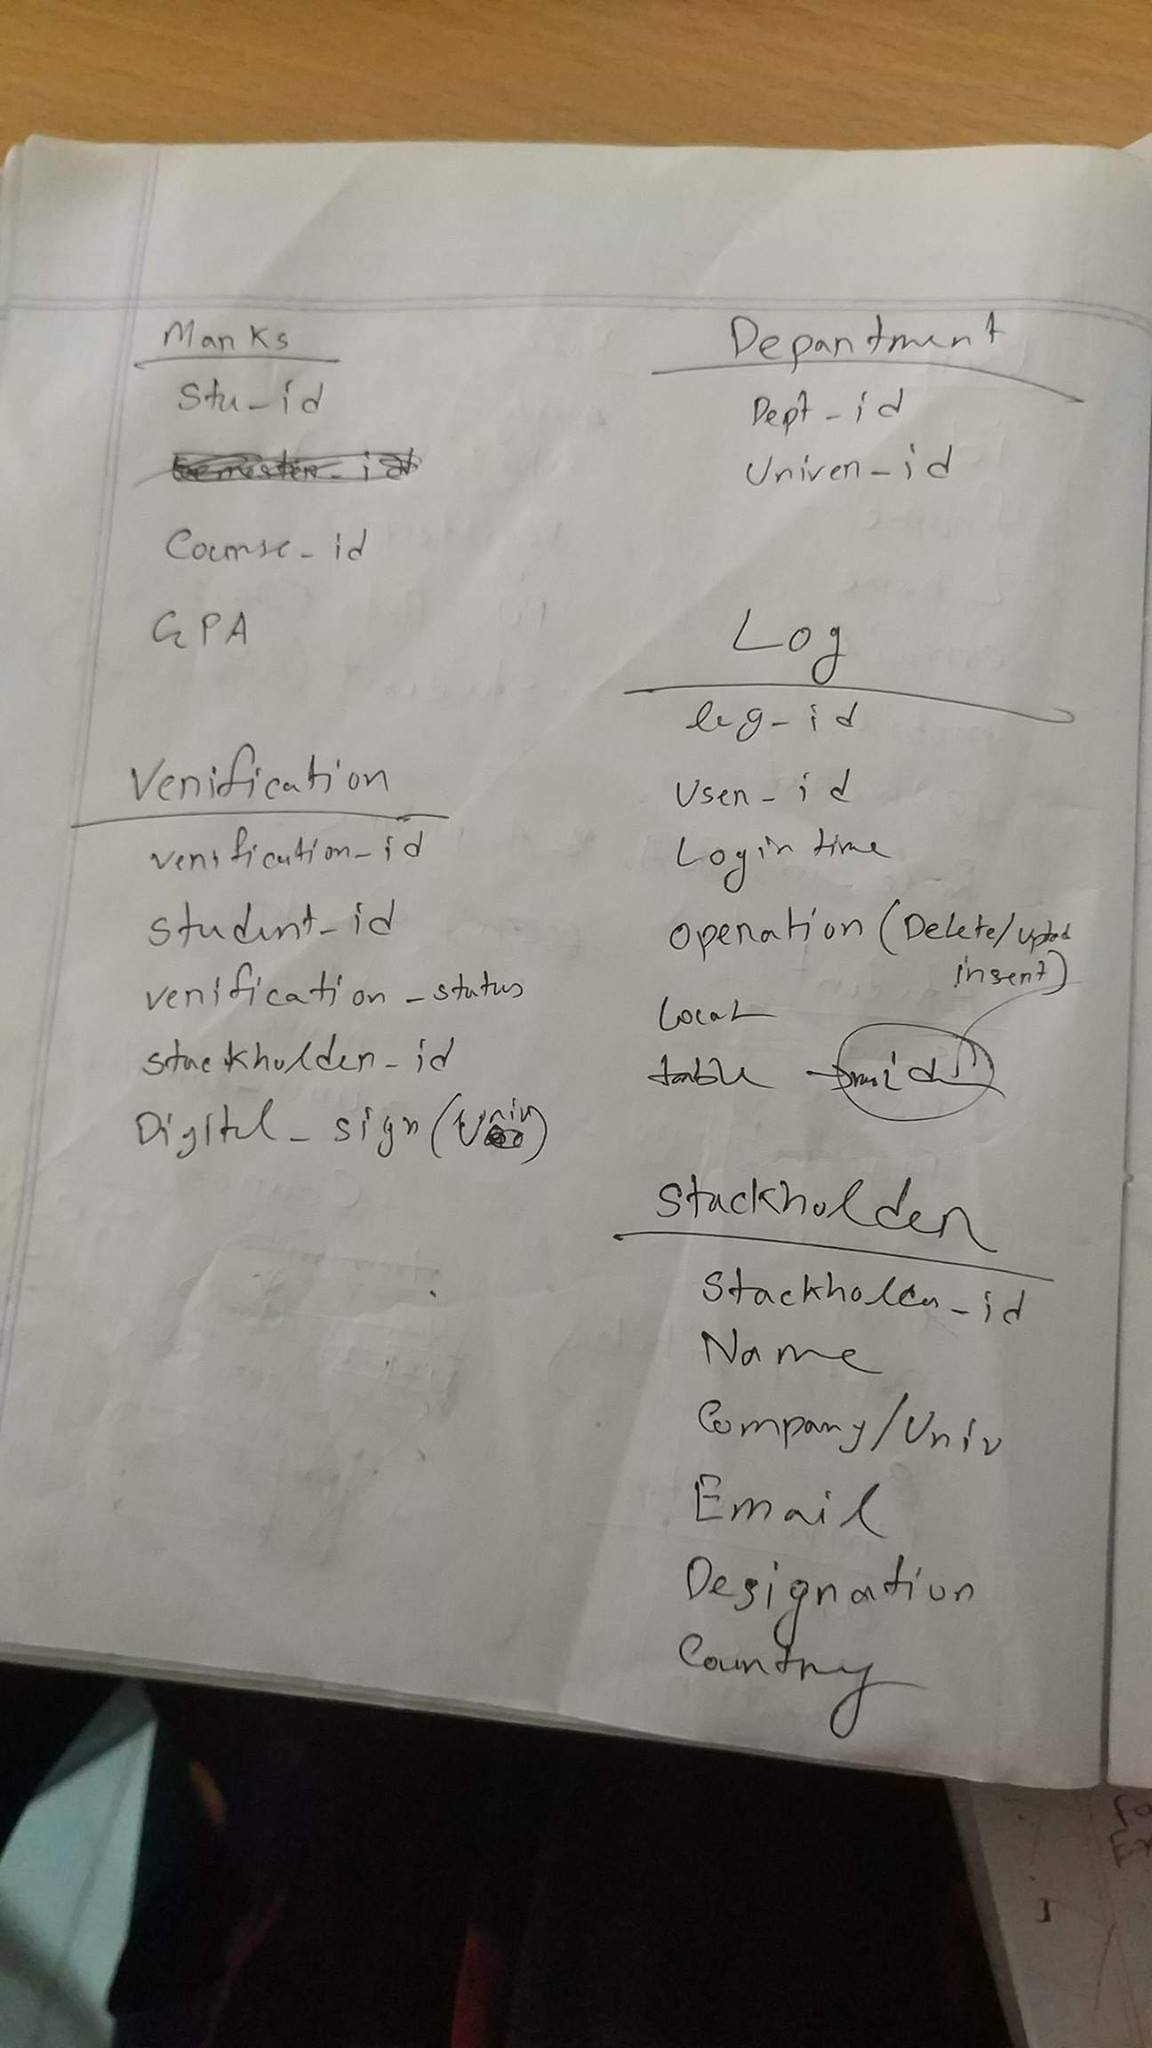 Marks
Stu-id
Semester-id
Course-id
GPA
Verification
verification-id
student-id
verification-status
stackholder-id
Digitel-sign (Univ)
Department
Dept-id
Univer-id
Log
log-id
User-id
Login time
Operation (Delete/
insert)
Local
table
Stackholder
Stackholder-id
Name
Company/Univ
Email
Designation
Country